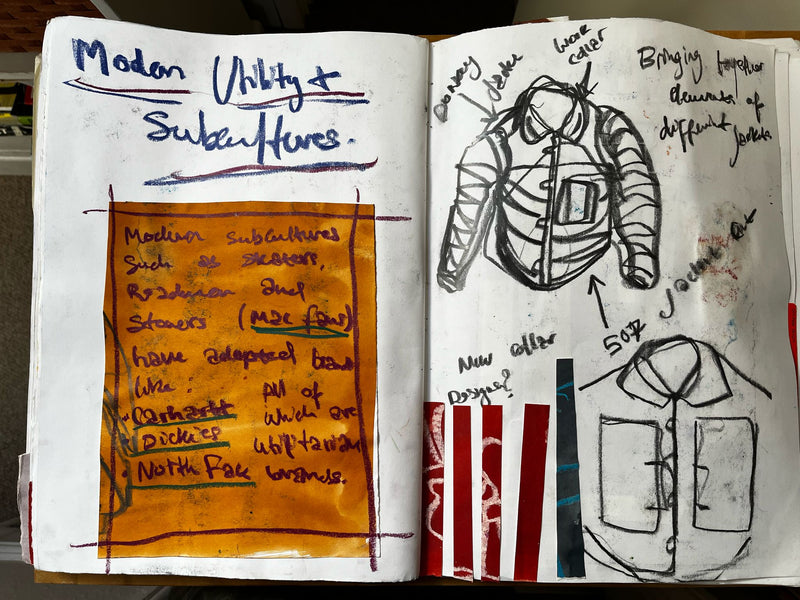 Modern Utility +
Subcultures.
Modern subcultures
such as skaters,
and
stoners (Mac fans)
have adapted brands
like: All of
· Carhartt which are
· Dickies utilitarian
· North Face brands.
Donkey
Jacket
Work
collar
Bringing together
Elements of
different jackets
New collar
Designs?